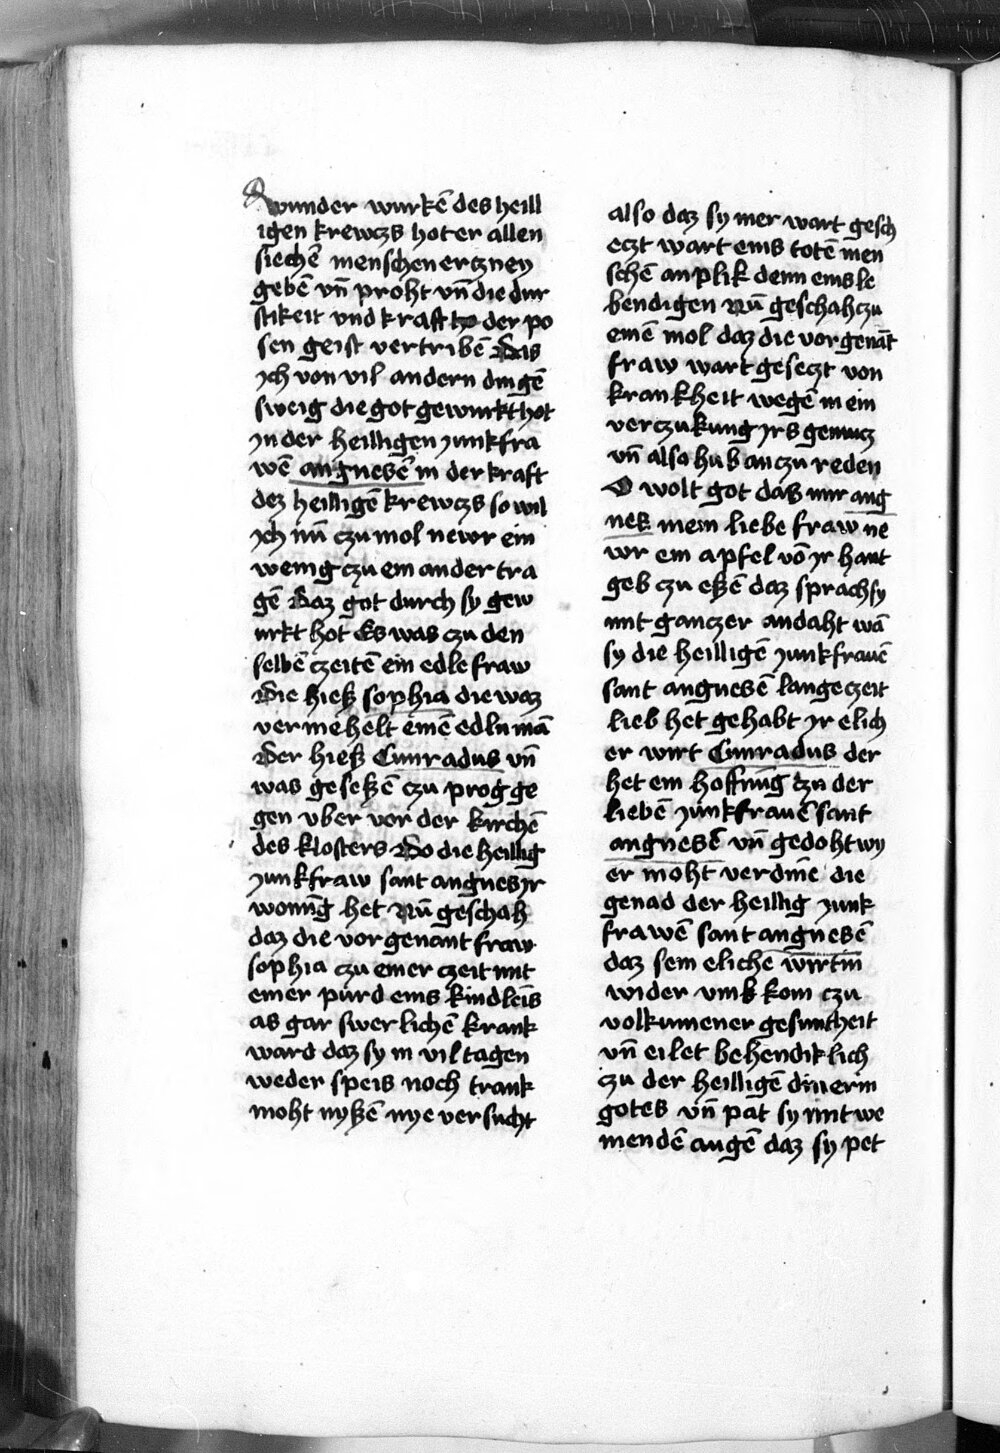 wunder wurkē des heill
igen krewczs hot er allen
siechē menschen erczney
gebē vn̄ proht vn̄ die dur
stikeit vnd kraft der po
sen geist vertribē Das
ych von vil andern dingē
sweig die got gewurkt hot
yn der heilligen yunkfra
wē angnesē in der kraft
dez heilligē krewczs so wil
ych nū czu mol newr ein
wenig czu ein ander tra
gē Daz got durch sy gew
urkt hot Es was czu den
selbē czeitē ein edle fraw
Die hieß sophia die waz
vermehelt einē edln mā
Der hieß Cunradus vn̄
was geseßē czu prog ge
gen vber vor der kirchē
des klosters Do die heillig
yunkfraw sant angnes yr
wonūg het Nū geschah
daz die vorgenant fraw
sophia czu einer czeit mit
einer purd eins kindleīs
as gar swerlichē krank
ward daz sy in vil tagen
weder speis noch trank
moht nyßē nye versucht
also daz sy mer wart gesch
eczt wart eins totē men
schē anplik denn eins le
bendigen Nū geschah czu
einē mol daz die vorgenāt
fraw wart geseczt von
krankheit wegē in ein
verczukung yrs gemucz
vn̄ also hub an czu reden
O wolt got das mir ang
nes mein liebe fraw ne
wr ein apfel vō yr hant
geb czu eßē daz sprach sy
mit ganczer andaht wā
sy die heilligē yunkfrauē
sant angnesē lange czeit
lieb het gehabt yr elich
er wirt Cunradus der
het ein hoffnūg czu der
liebē yunkfrauē sant
angnesē vn̄ gedoht wy
er moht verdinē die
genad der heillig yunk
frawē sant angnesē
daz sein elichē wirtin
wider vmb kom czu
volkumener gesuntheit
vn̄ eilet behendiklich
czu der heilligē dinerin
gotes vn̄ pat sy mit we
inendē augē daz sy pet